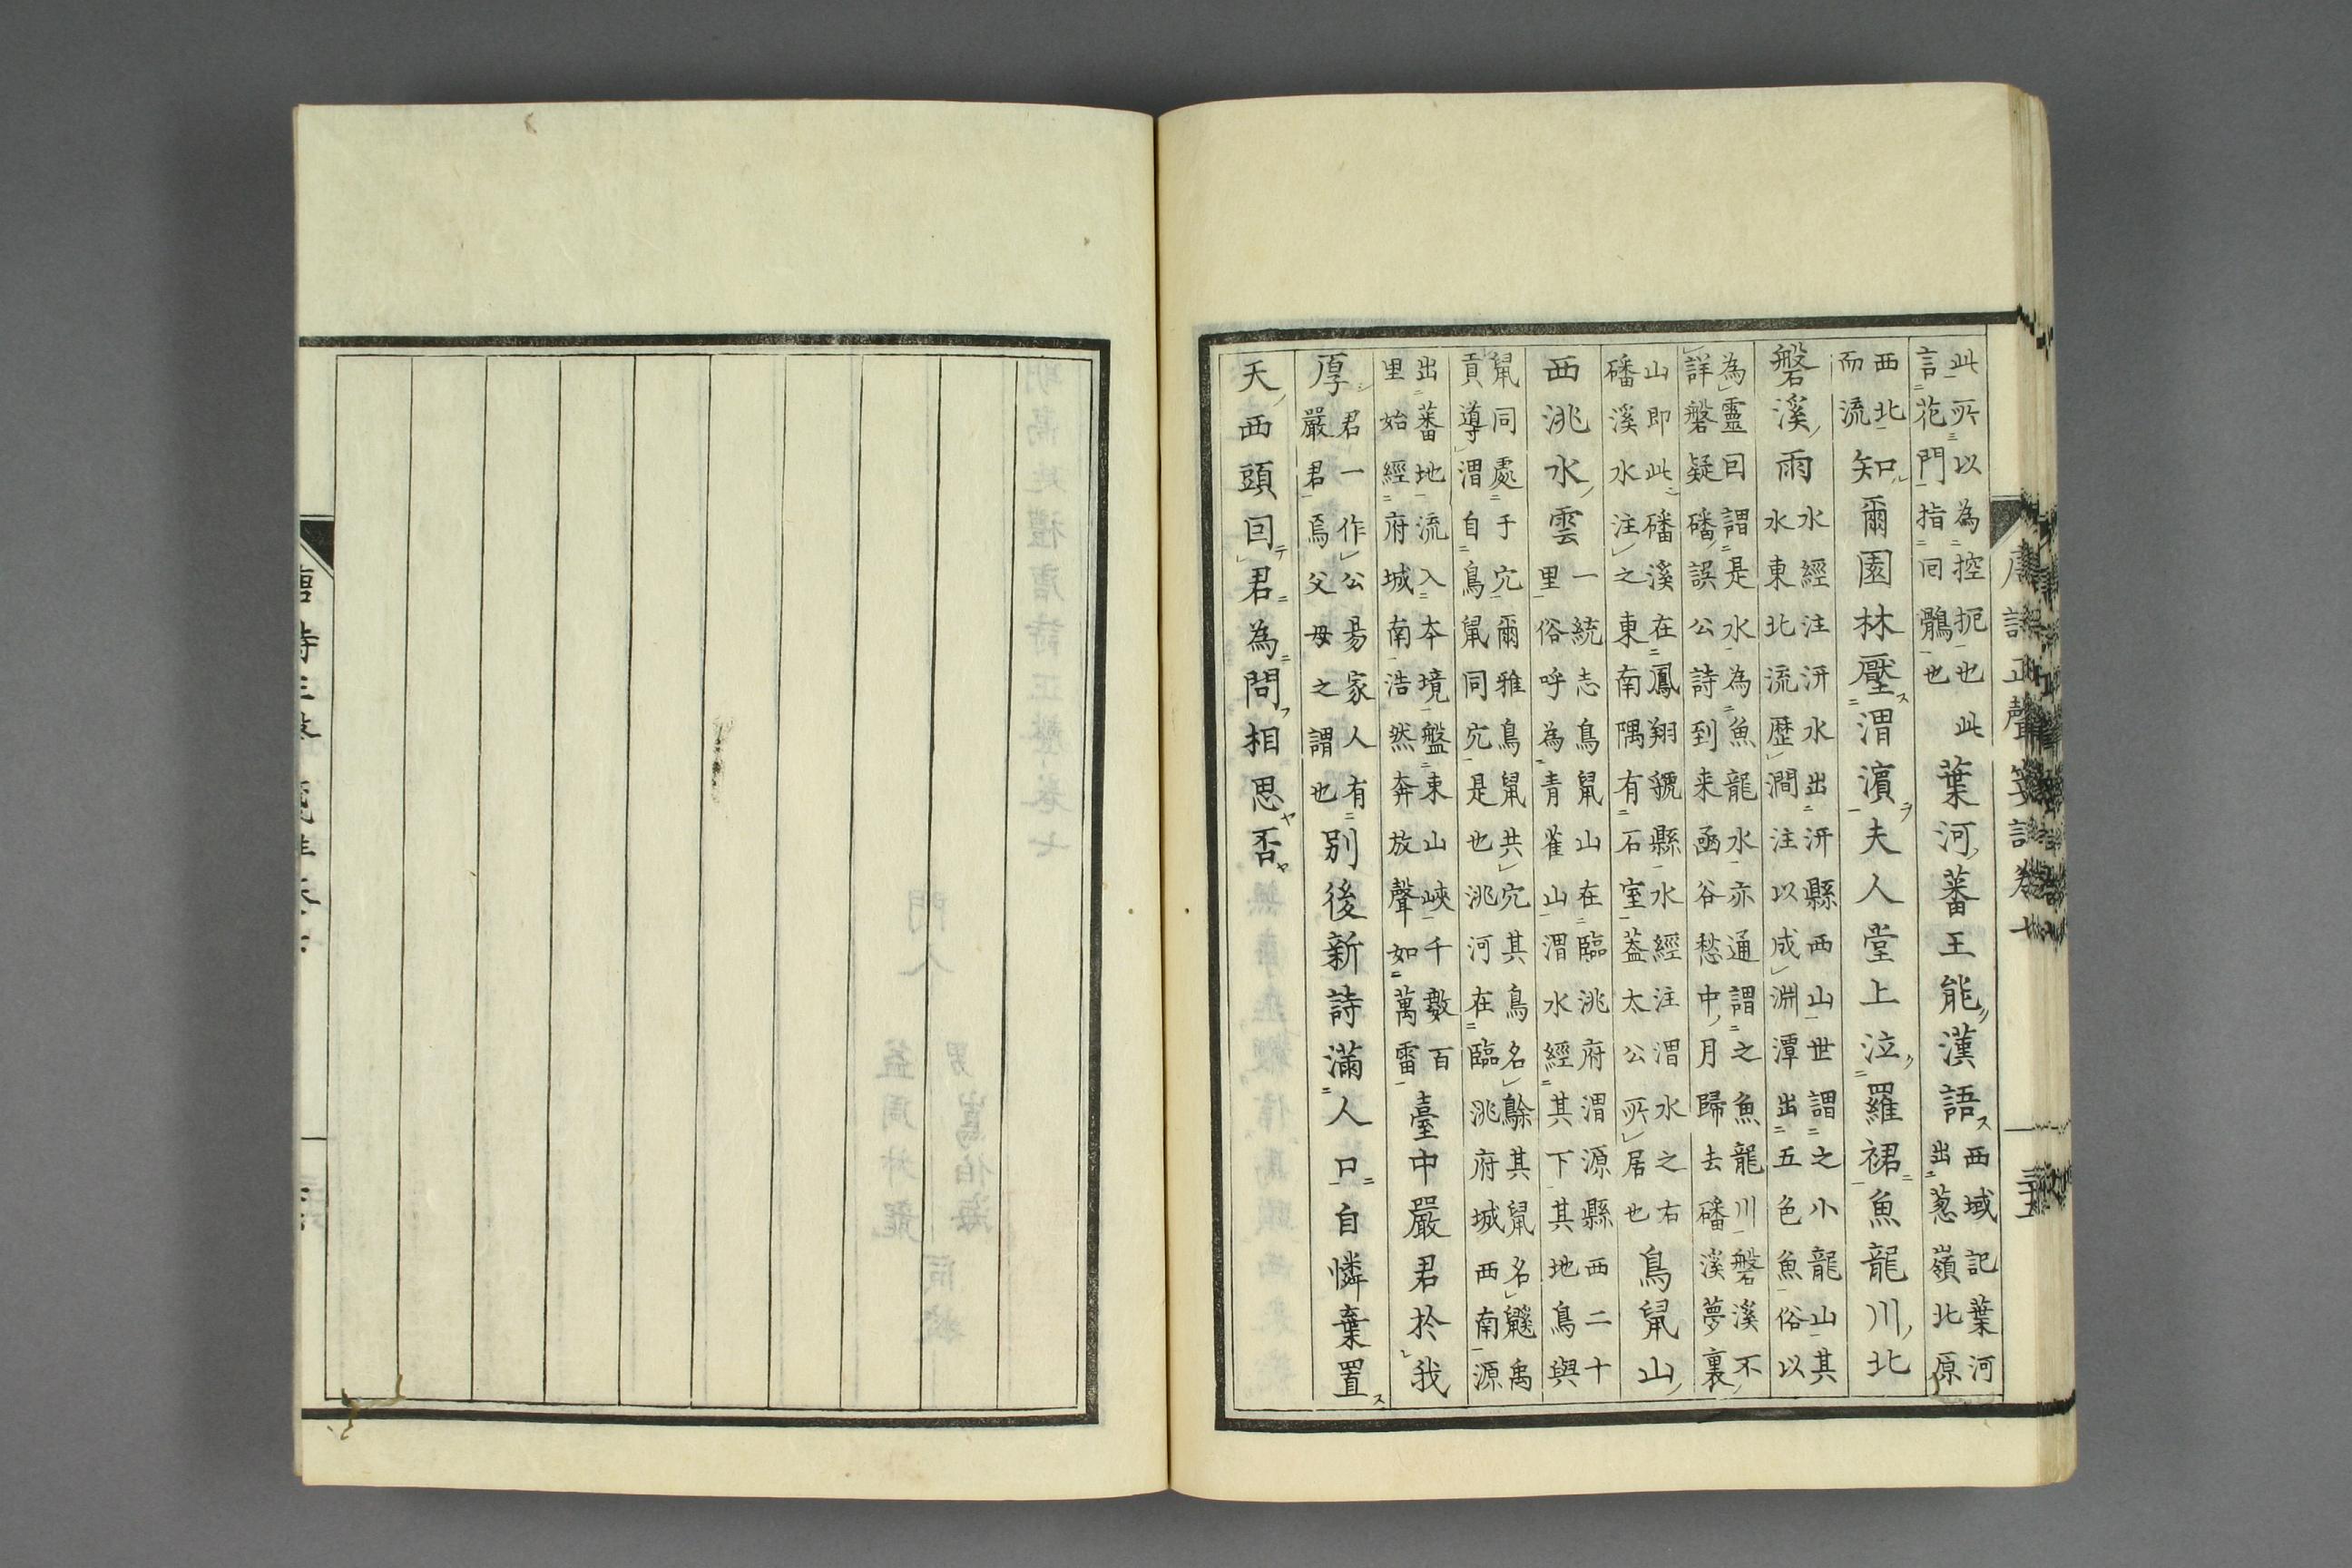 唐詩正聲箋註卷七
此所以為控扼也　此
言花門指回鶻也
葉河蕃王能漢語
西域記葉河
出葱嶺北原
西北
而流
知爾園林壓渭濵夫人堂上泣羅裙魚龍川北
磐溪雨
水經注汧水出汧縣西山世謂之小龍山其
水東北流歷澗注以成淵潭出五色魚俗以
為靈曰謂是水為魚龍水亦通謂之魚龍川磐溪不
詳磐疑磻誤公詩到来函谷愁中月歸去磻溪夢裏
山即此磻溪在鳳翔虢縣水經注渭水之右
磻溪水注之東南隅有石室蓋太公所居也
鳥鼠山
西洮水雲
一統志鳥鼠山在臨洮府渭源縣西二十
里俗呼為青雀山渭水經其下其地鳥與
鼠同處于穴爾雅鳥鼠共穴其鳥名鵌其鼠名鼵禹
貢導渭自鳥鼠同穴是也洮河在臨洮府城西南源
出蕃地流入本境盤東山峽千數百
里始經府城南浩然奔放聲如萬雷
臺中嚴君於我
厚
君一作公易家人有
嚴君焉父母之謂也
別後新詩滿人口自憐棄置
天西頭回君為問相思否